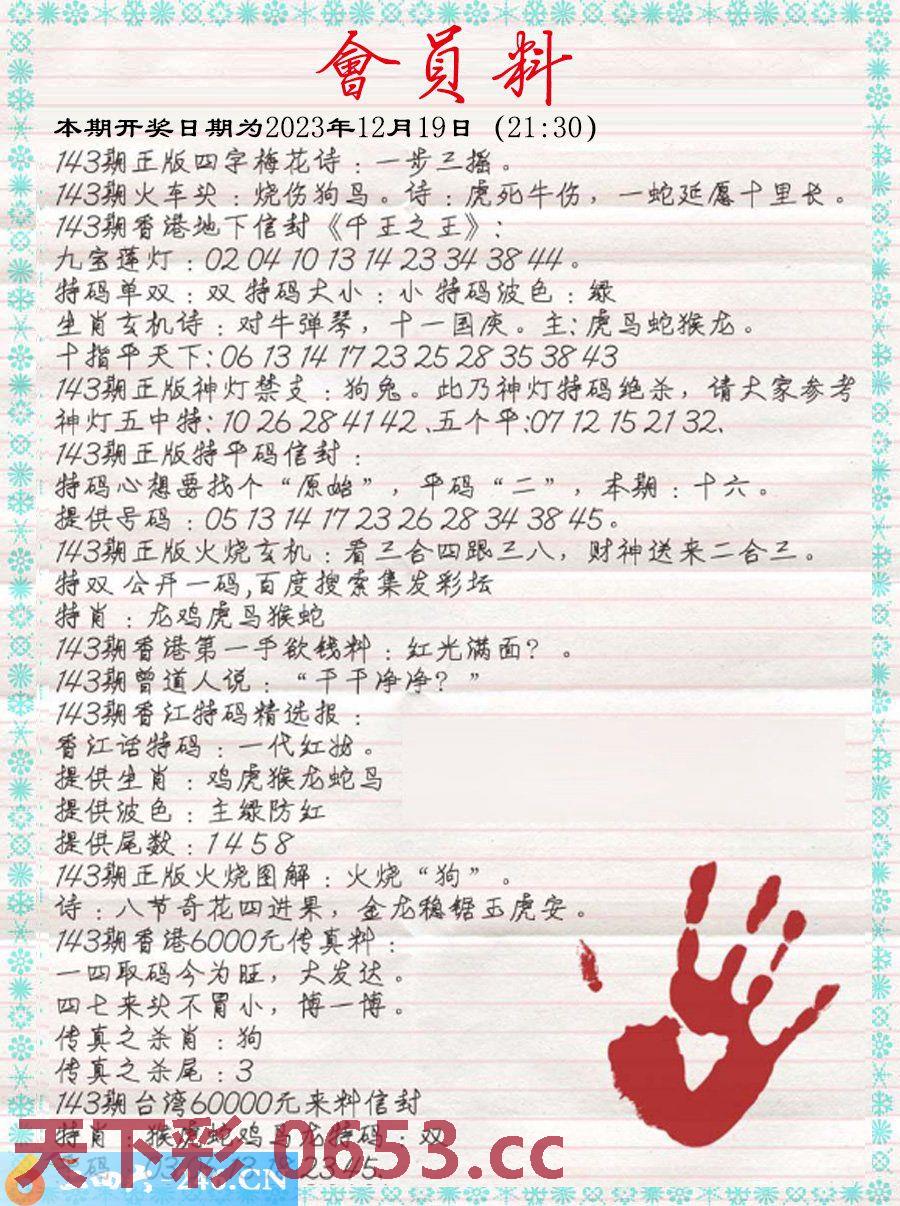 會員料
本期开奖日期为2023年12月19日 (21:30)
143期正版四字梅花诗：一步三摇。
143期火车头：烧伤狗鸟。诗：虎死牛伤，一蛇延愿十里长。
143期香港地下信封《千王之王》：
九宝莲灯：02 04 10 13 14 23 34 38 44。
特码单双：双 特码大小：小 特码波色：绿
生肖玄机诗：对牛弹琴，十一国庆。主：虎鸟蛇猴龙。
十指平天下：06 13 14 17 23 25 28 35 38 43
143期正版神灯禁支：狗兔。此乃神灯特码绝杀，请大家参考
神灯五中特：10 26 28 41 42、五个平：07 12 15 21 32、
143期正版特平码信封：
特码心想要找个“原始”，平码“二”，本期：十六。
提供号码：05 13 14 17 23 26 28 34 38 45。
143期正版火烧玄机：看三合四跟三八，财神送来二合三。
特双 公开一码,百度搜索集发彩坛
特肖：龙鸡虎马猴蛇
143期香港第一手欲钱料：红光满面？。
143期曾道人说：“干干净净？”
143期香江特码精选报：
香江话特码：一代红妆。
提供生肖：鸡虎猴龙蛇马
提供波色：主绿防红
提供尾数：1 4 5 8
143期正版火烧图解：火烧“狗”。
诗：八节奇花四进果，金龙稳锯玉虎安。
143期香港6000元传真料：
一四取码今为旺，大发达。
四七来头不冒小，博一博。
传真之杀肖：狗
传真之杀尾：3
143期台湾60000元来料信封
特肖：猴虎蛇鸡马龙特码：双
23 45、
天下彩 0653.cc
246.CN